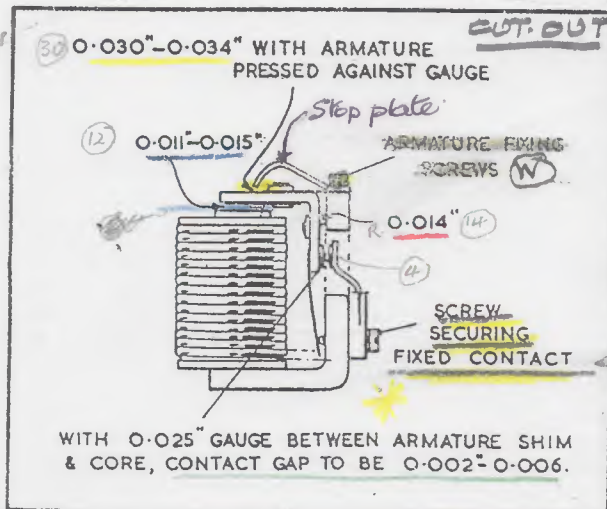 CUT-OUT
30 0·030"-0·034" WITH ARMATURE
PRESSED AGAINST GAUGE
Stop plate
12 0·011"-0·015"
ARMATURE FIXING
SCREWS W
R 0·014" 14
4
SCREW
SECURING
FIXED CONTACT
WITH 0·025" GAUGE BETWEEN ARMATURE SHIM
& CORE, CONTACT GAP TO BE 0·002"-0·006.